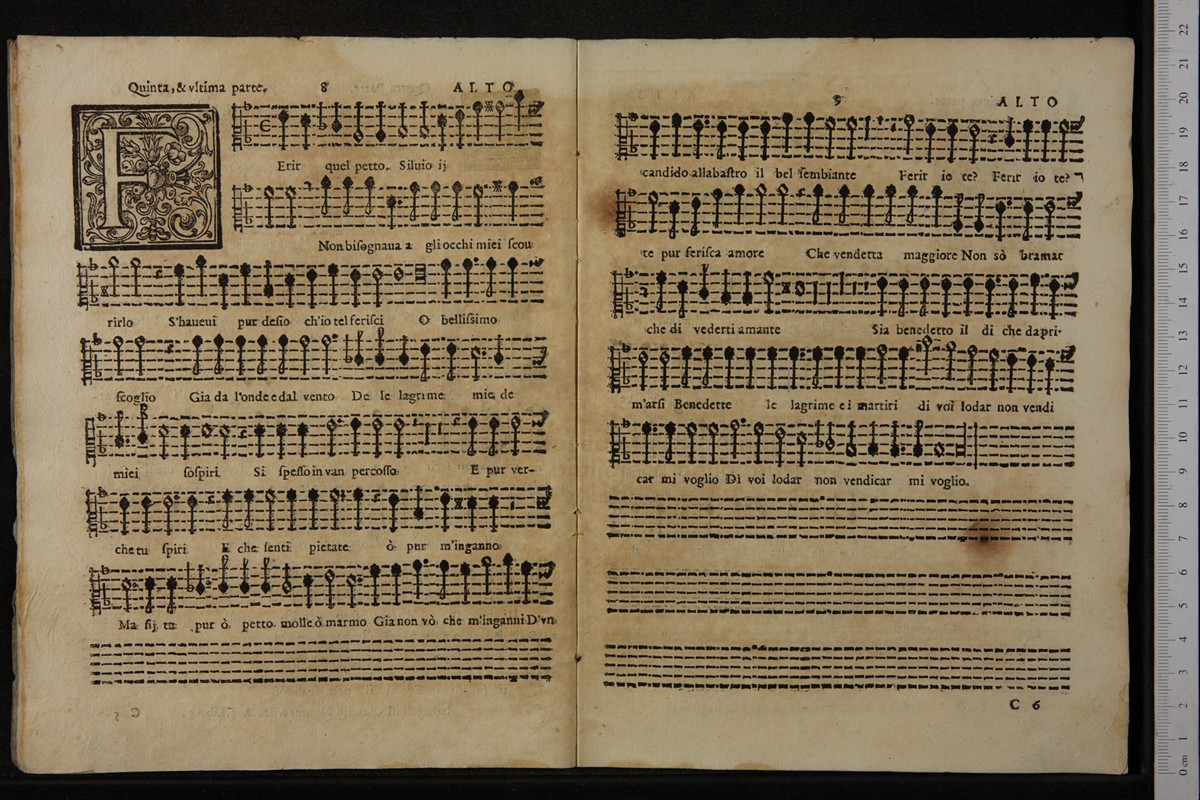 Quinta, & vltima parte. 8 ALTO
F
Erir quel petto. Siluio ij
Non bisognaua a gli occhi miei scou
rirlo S'haueui pur desio ch'io tel ferisci O bellissimo
scoglio Gia da l'onde e dal vento De le lagrime mie de
miei sospiri Si spesso in van percosso E pur ver-
che tu spiri E che senti pietate ò pur m'inganno
Ma sij tu pur ò petto molle ò marmo Gia non vò che m'inganni D'vn
9 ALTO
candido allabastro il bel sembiante Ferir io te? Ferir io te?
te pur ferisca amore Che vendetta maggiore Non sò bramar
che di vederti amante Sia benedetto il di che da pri-
m'arsi Benedette le lagrime e i martiri di voi lodar non vendi
car mi voglio Di voi lodar non vendicar mi voglio.
C 6
22
21
20
19
18
17
16
15
14
13
12
11
10
9
8
7
6
5
4
3
2
1
0 cm